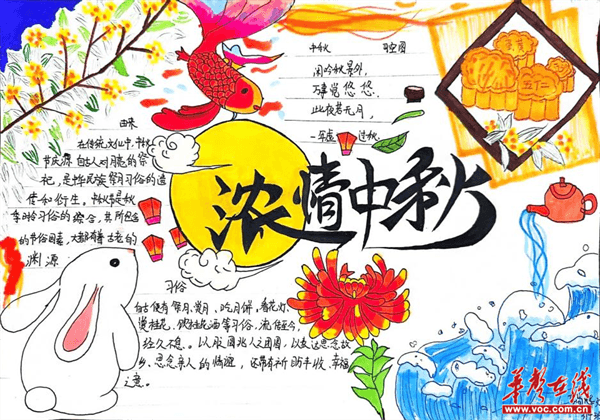 中秋 司空图
闲吟秋景外,
万事觉悠悠。
此夜若无月,
一年虚过秋。
由来
在传统文化中,中秋
节起源自古人对月亮的崇
祀,是中华民族祭月习俗的遗
存和衍生。中秋节是秋
季时令习俗的综合,其所包含
的节俗因素,大都有着古老的
渊源
浓情中秋
五仁
习俗
自古便有祭月、赏月、吃月饼、看花灯、
赏桂花、饮桂花酒等习俗,流传至今,
经久不息。以月之圆兆人之团圆,以寄托思念故
乡,思念亲人的情,还有祈盼丰收、幸福
之意。
华声在线
www.voc.com.cn